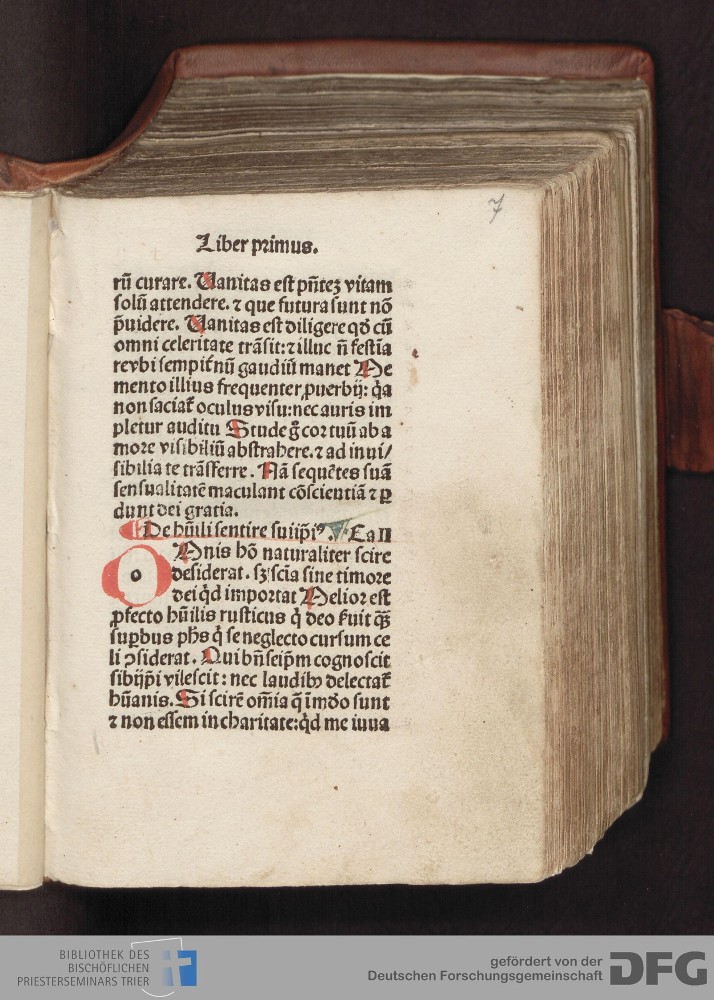 7
Liber primus.
rū curare. Uanitas est pn̄tez vitam
solū attendere. ⁊ que futura sunt nō
p̄uidere. Uanitas est diligere qd̄ cū
omni celeritate trāsit: ⁊ illuc n̄ festīa
re vbi sempit̄nū gaudiū manet Me
mento illius frequenter ꝓuerbij: q̇a
non saciat᷑ oculus visu: nec auris im
pletur auditu Stude g̊ cor tuū ab a
more visibiliū abstrahere. ⁊ ad inui/
sibilia te trāsferre. Nā sequētes suā
sensualitatē maculant cōscientiā ⁊ ꝑ
dunt dei gratia.
De hūili sentire suiip̄iꝰ. Ca II
o Mnis hō naturaliter scire
desiderat. sꝫ scīa sine timore
dei qḋ importat Melior est
ꝓfecto hūilis rusticus q̇ deo seruit qꝫ̄
suꝑbus ph̄s q̇ se neglecto cursum ce
li ꝯsiderat. Qui bn̄ seip̄m cognoscit
sibijp̄i vilescit: nec laudibꝫ delectat᷑
hūanis. Si scirē om̄ia q̄ i mōo sunt
⁊ non essem in charitate: qḋ me iuua
BIBLIOTHEK DES
BISCHÖFLICHEN
PRIESTERSEMINARS TRIER
gefördert von der
Deutschen Forschungsgemeinschaft
DFG